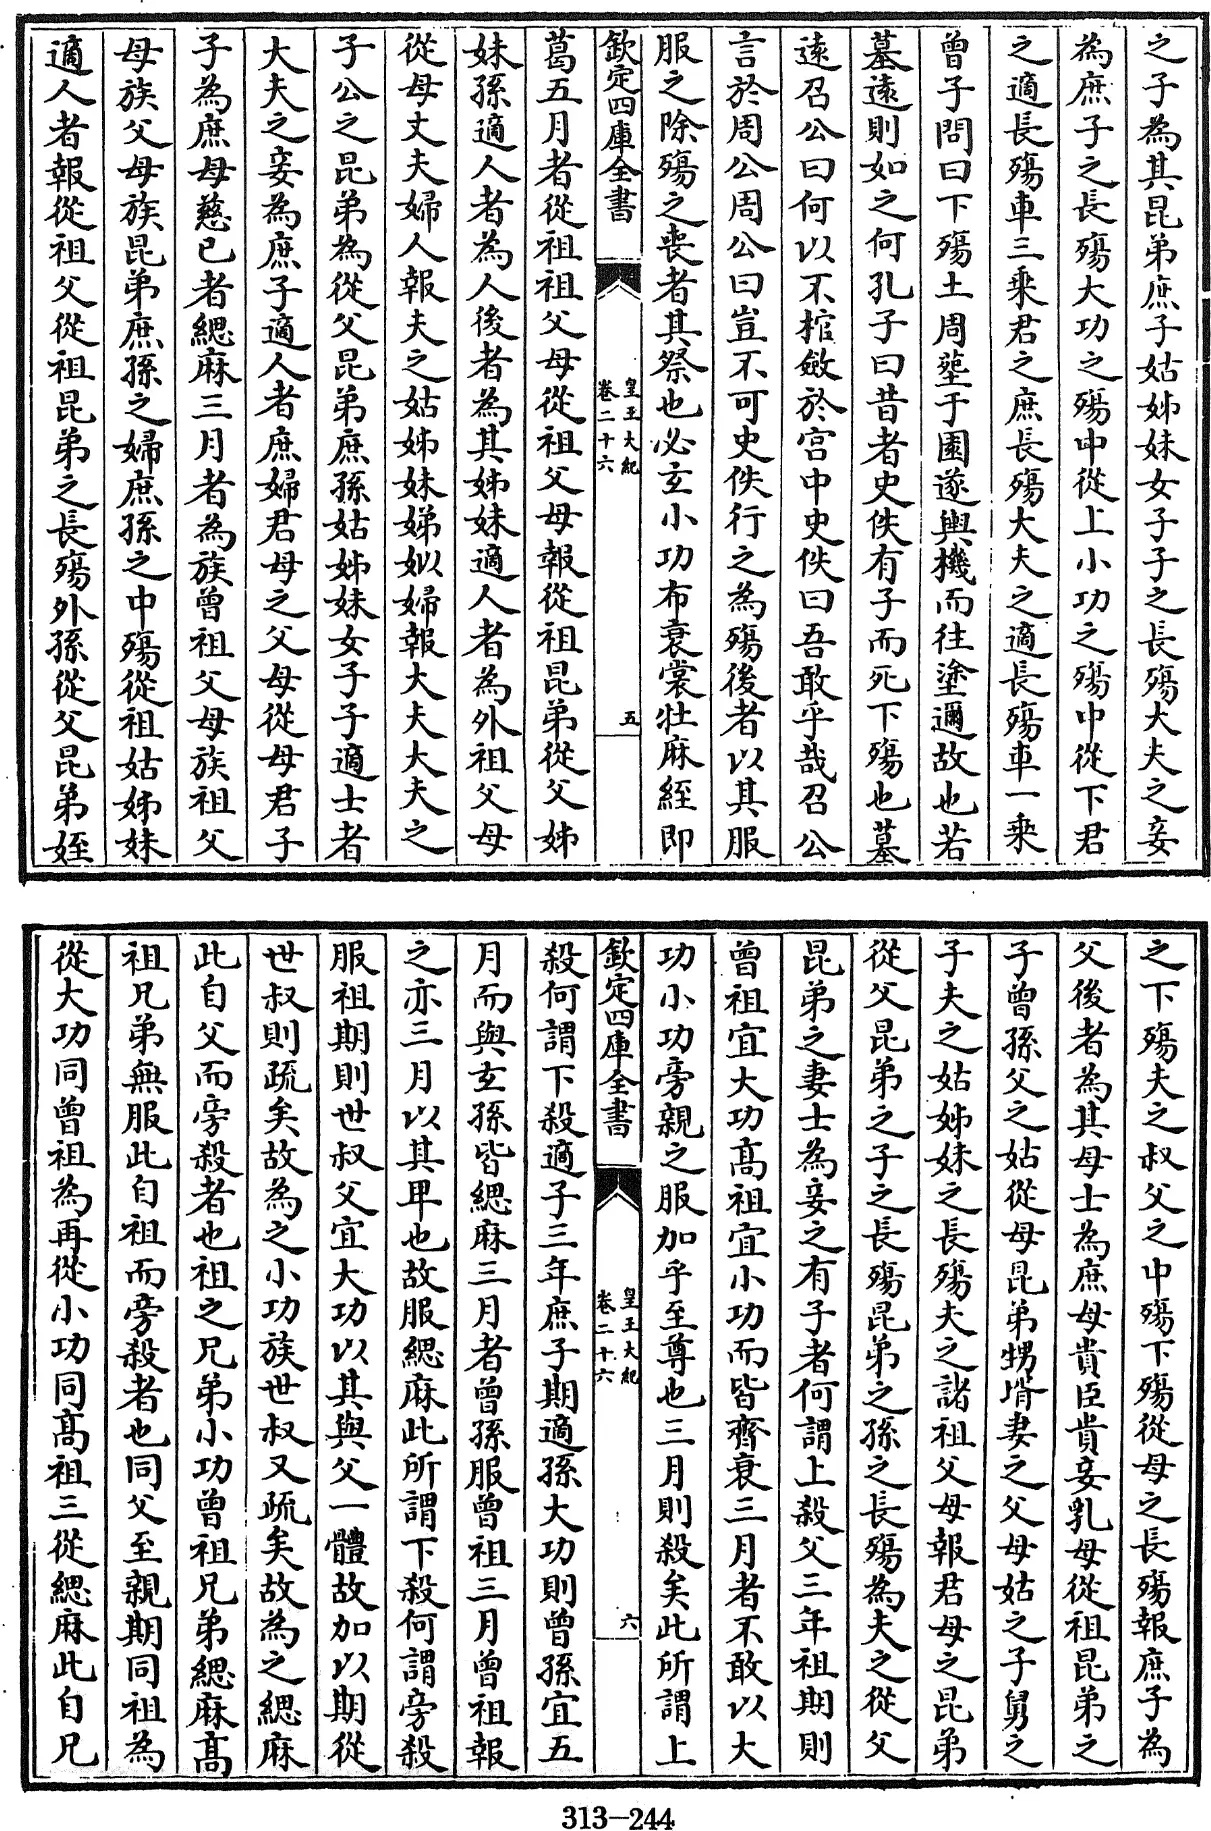 之子為其昆弟庶子姑姊妹女子子之長殤大夫之妾
為庶子之長殤大功之殤中從上小功之殤中從下君
之適長殤車三乘君之庶長殤大夫之適長殤車一乘
曾子問曰下殤土周塟于園遂輿機而往塗邇故也若
墓遠則如之何孔子曰昔者史佚有子而死下殤也墓
遠召公曰何以不棺斂於宫中史佚曰吾敢乎哉召公
言於周公周公曰豈不可史佚行之為殤後者以其服
服之除殤之喪者其祭也必玄小功布衰裳牡麻絰即
欽定四庫全書
皇王大紀
卷二十六
五
葛五月者從祖祖父母從祖父母報從祖昆弟從父姊
妹孫適人者為人後者為其姊妹適人者為外祖父母
從母丈夫婦人報夫之姑姊妹娣姒婦報大夫大夫之
子公之昆弟為從父昆弟庶孫姑姊妹女子子適士者
大夫之妾為庶子適人者庶婦君母之父母從母君子
子為庶母慈已者緦麻三月者為族曾祖父母族祖父
母族父母族昆弟庶孫之婦庶孫之中殤從祖姑姊妹
適人者報從祖父從祖昆弟之長殤外孫從父昆弟姪
之下殤夫之叔父之中殤下殤從母之長殤報庶子為
父後者為其母士為庶母貴臣貴妾乳母從祖昆弟之
子曾孫父之姑從母昆弟甥壻妻之父母姑之子舅之
子夫之姑姊妹之長殤夫之諸祖父母報君母之昆弟
從父昆弟之子之長殤昆弟之孫之長殤為夫之從父
昆弟之妻士為妾之有子者何謂上殺父三年祖期則
曾祖宜大功高祖宜小功而皆齊衰三月者不敢以大
功小功旁親之服加乎至尊也三月則殺矣此所謂上
欽定四庫全書
皇王大紀
卷二十六
六
殺何謂下殺適子三年庶子期適孫大功則曾孫宜五
月而與玄孫皆緦麻三月者曾孫服曾祖三月曾祖報
之亦三月以其卑也故服緦麻此所謂下殺何謂旁殺
服祖期則世叔父宜大功以其與父一體故加以期從
世叔則疏矣故為之小功族世叔又疏矣故為之緦麻
此自父而旁殺者也祖之兄弟小功曾祖兄弟緦麻高
祖兄弟無服此自祖而旁殺者也同父至親期同祖為
從大功同曾祖為再從小功同高祖三從緦麻此自兄
313-244